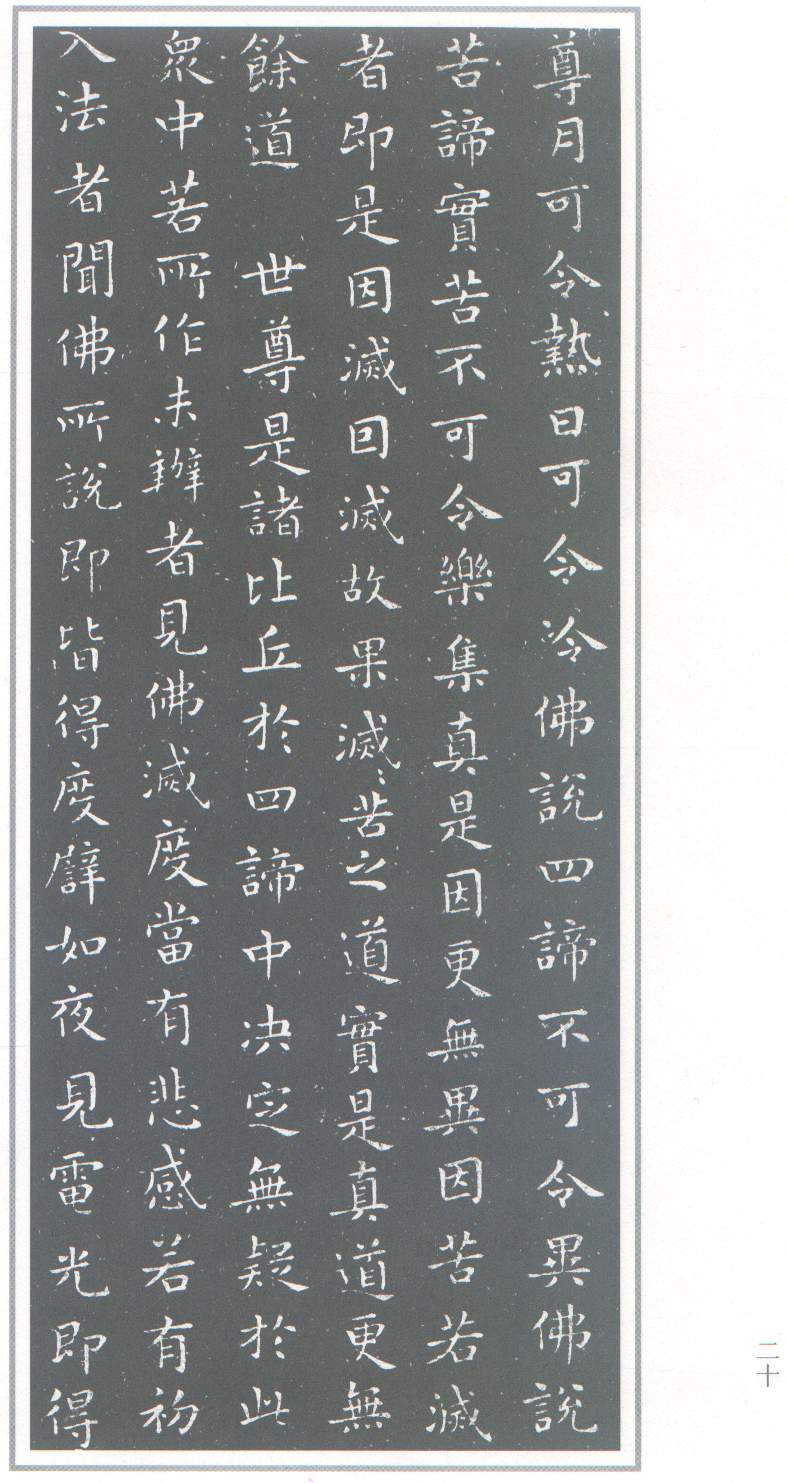 尊月可令熱日可令冷佛說四諦不可令異佛說
苦諦實苦不可令樂集真是因更無異因苦若滅
者即是因滅回滅故果滅〻苦之道實是真道更無
餘道　世尊是諸比丘於四諦中决定無疑於此
眾中若所作未辦者見佛滅度當有悲感若有初
入法者聞佛所說即皆得度譬如夜見電光即得
二十